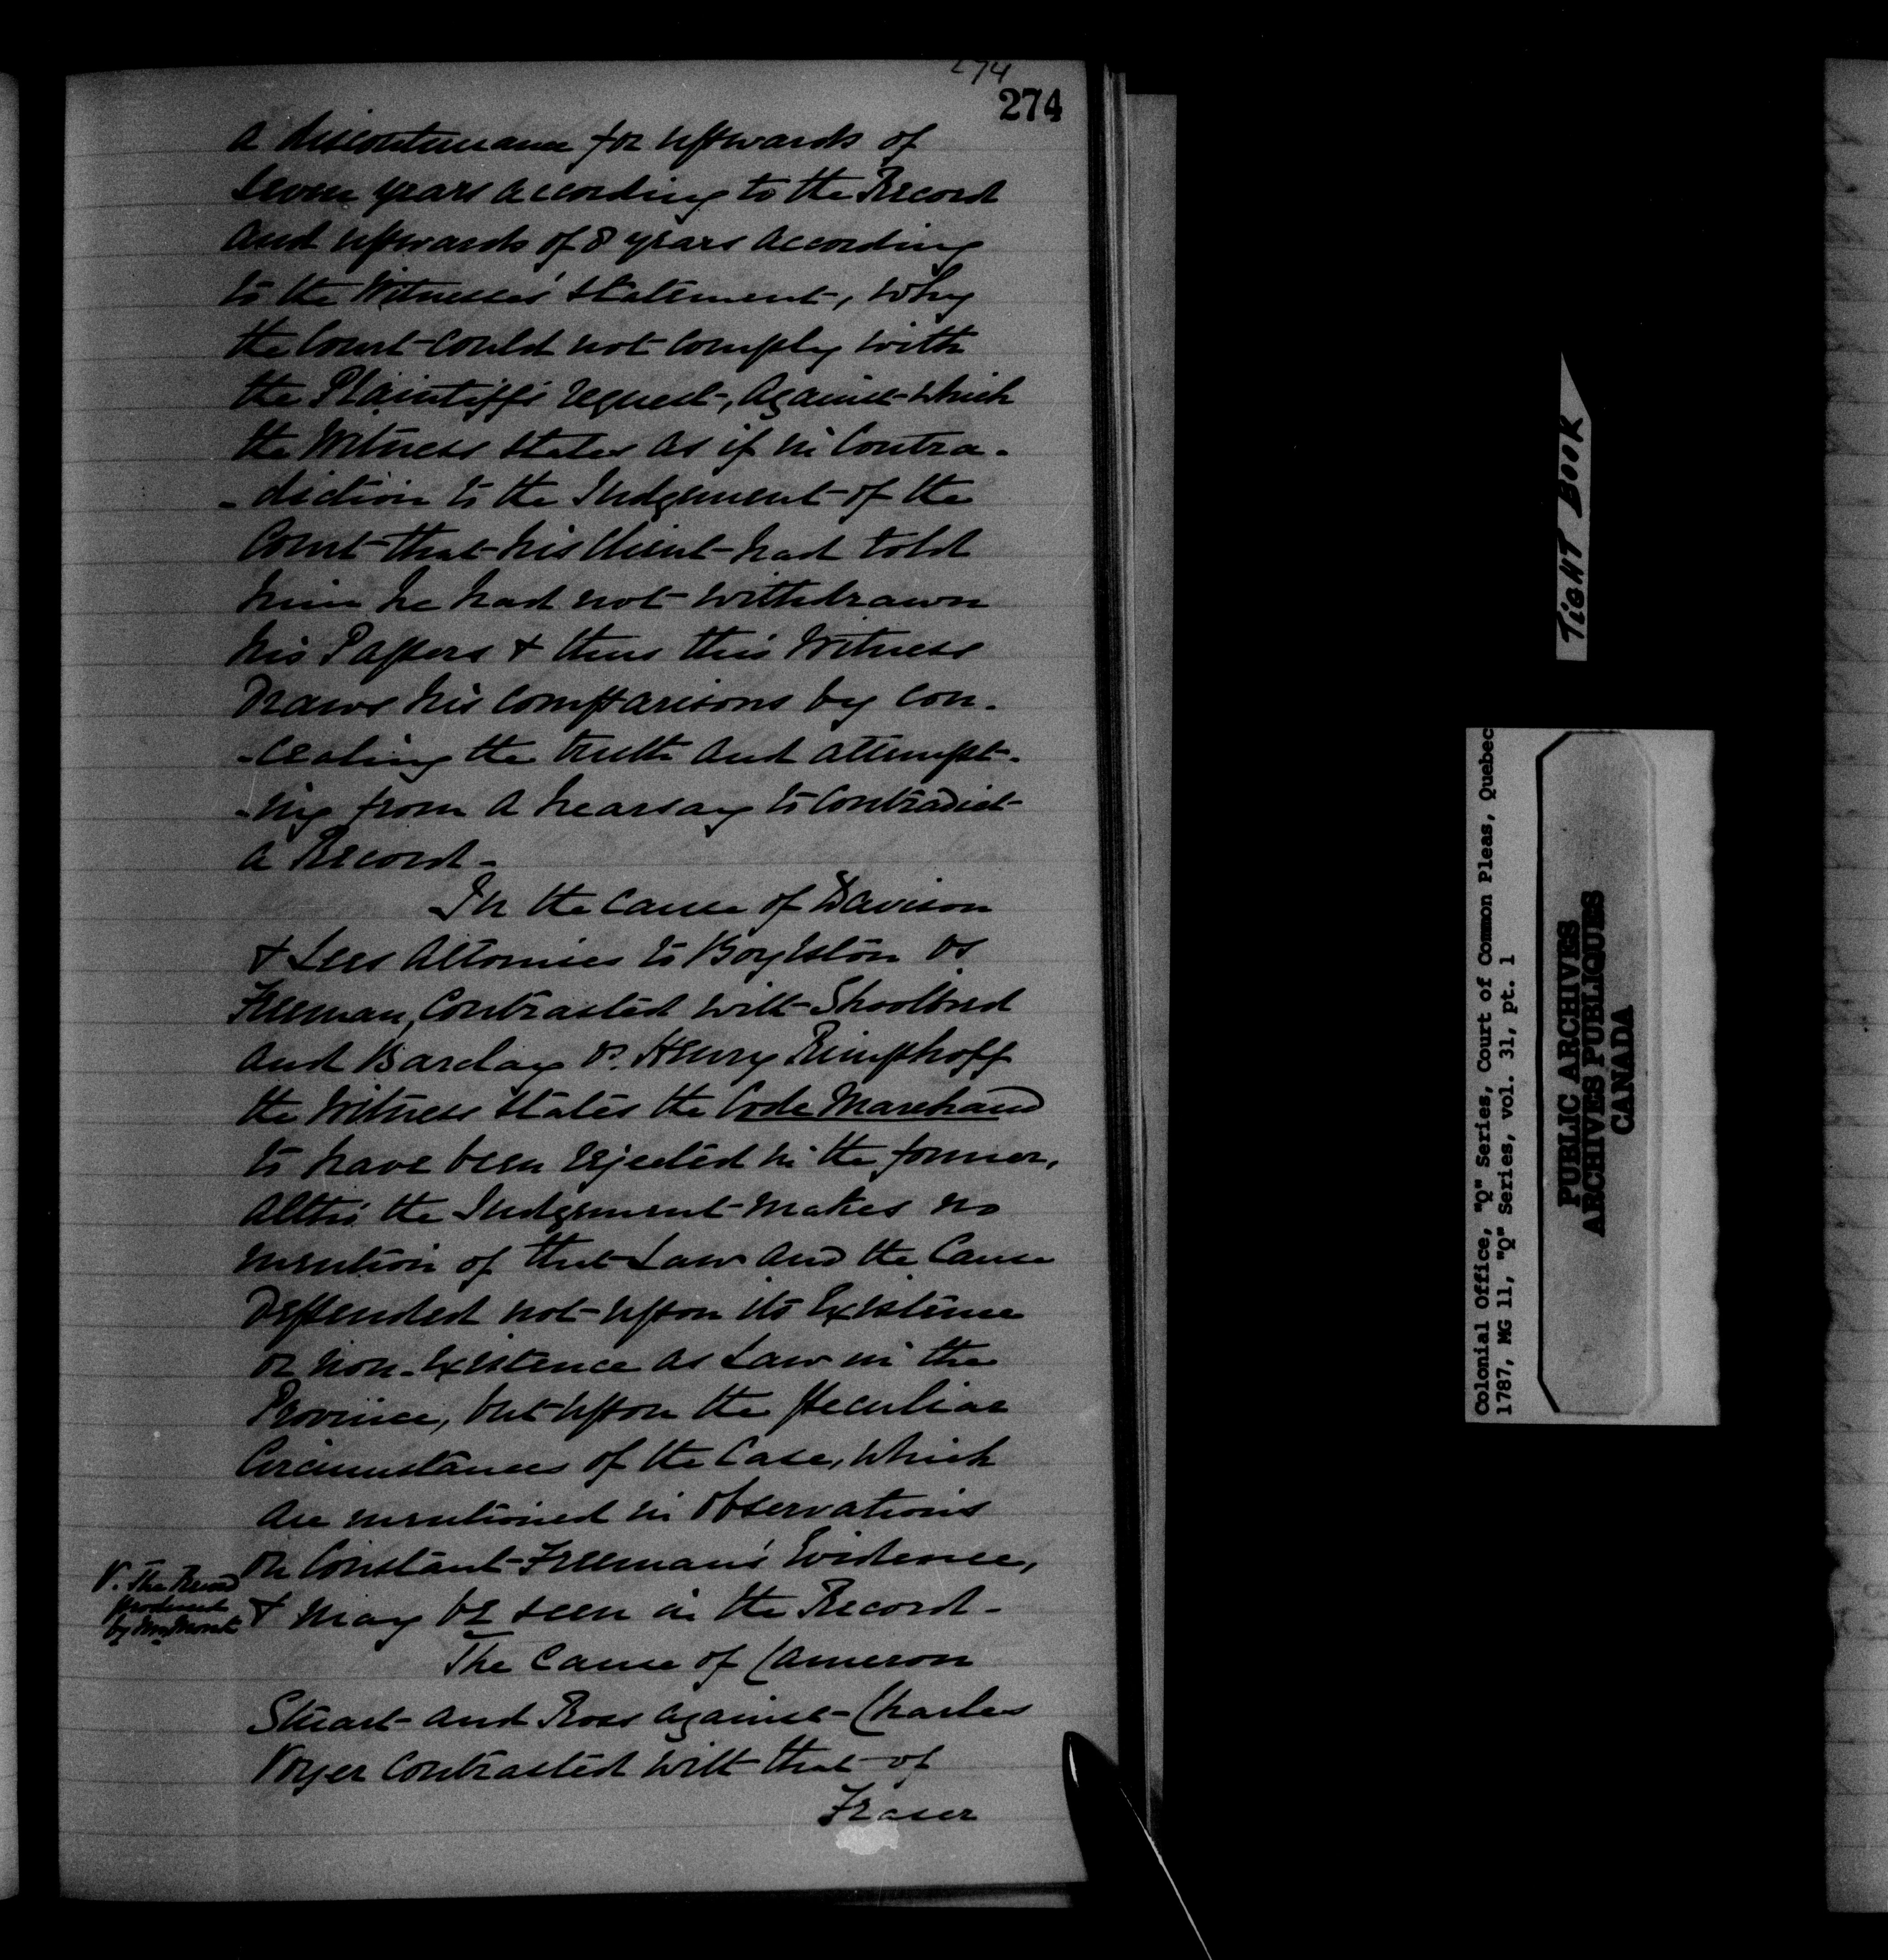 274
274
a discontinuance for upwards of
seven years according to the Record
and upwards of 8 years according
to the Witnesses' statement, why
the Court could not comply with
the Plaintiff's request, against which
the Witness states as if in Contra-
-diction to the Judgement of the
Court that his Client had told
him he had not withdrawn
his Papers & thus this Witness
Draws his comparisons by con-
-cealing the truth and attempt-
-ing from a hearsay to Contradict
a Record -
In the Cause of Davison
& Lees Attornies to Boylston vs
Freeman, Contrasted with Shoolbred
and Barclay vs. Henry Rimphoff
the Witness states the Code Marchand
to have been rejected in the former,
altho' the Judgement makes no
mention of that Law and the Cause
Depended not upon its Existence
or non-Existence as Law in the
Province, but upon the peculiar
Circumstances of the Case, which
are mentioned in Observations
on Constant Freeman's Evidence,
& may be seen in the Record -
V. The Record
produced
by Mr Monk
The Cause of Cameron
Stuart and Ross against Charles
Voyer Contrasted with that of
Fraser
TiGHT BOOK
Colonial Office, "Q" Series, Court of Common Pleas, Quebec
1787, MG 11, "Q" Series, vol. 31, pt. 1
PUBLIC ARCHIVES
ARCHIVES PUBLIQUES
CANADA